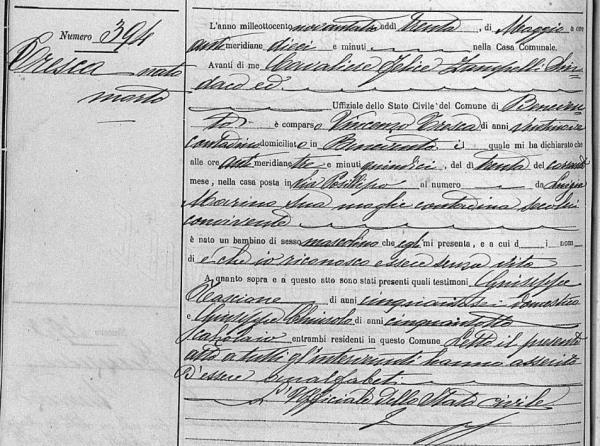 Numero 394
Tresca nato
morto
L'anno milleottocento novantatre addì trenta, di Maggio a ore
anti meridiane dieci e minuti nella Casa Comunale.
Avanti di me Cavaliere Felice Zampelli Sin-
daco ed
Uffiziale dello Stato Civile del Comune di Beneven-
to è comparso Vincenzo Tresca di anni
contadino domiciliato in Benevento i quale mi ha dichiarato che
alle ore anti meridiane tre e minuti quindici, del dì trenta del corrente
mese, nella casa posta in Via Posillipo al numero da Luigia
Marino sua moglie contadina seco lui
convivente
è nato un bambino di sesso mascolino che egli mi presenta, e a cui d i nom
di e che io riconosco essere senza vita
A quanto sopra e a questo atto sono stati presenti quali testimoni Giuseppe
di anni domestico
e Giuseppe di anni cinquantotto
entrambi residenti in questo Comune Letto il presente
atto a tutti gl'intervenuti hanno asserito
d'essere analfabeti
L'Uffiziale dello Stato civile